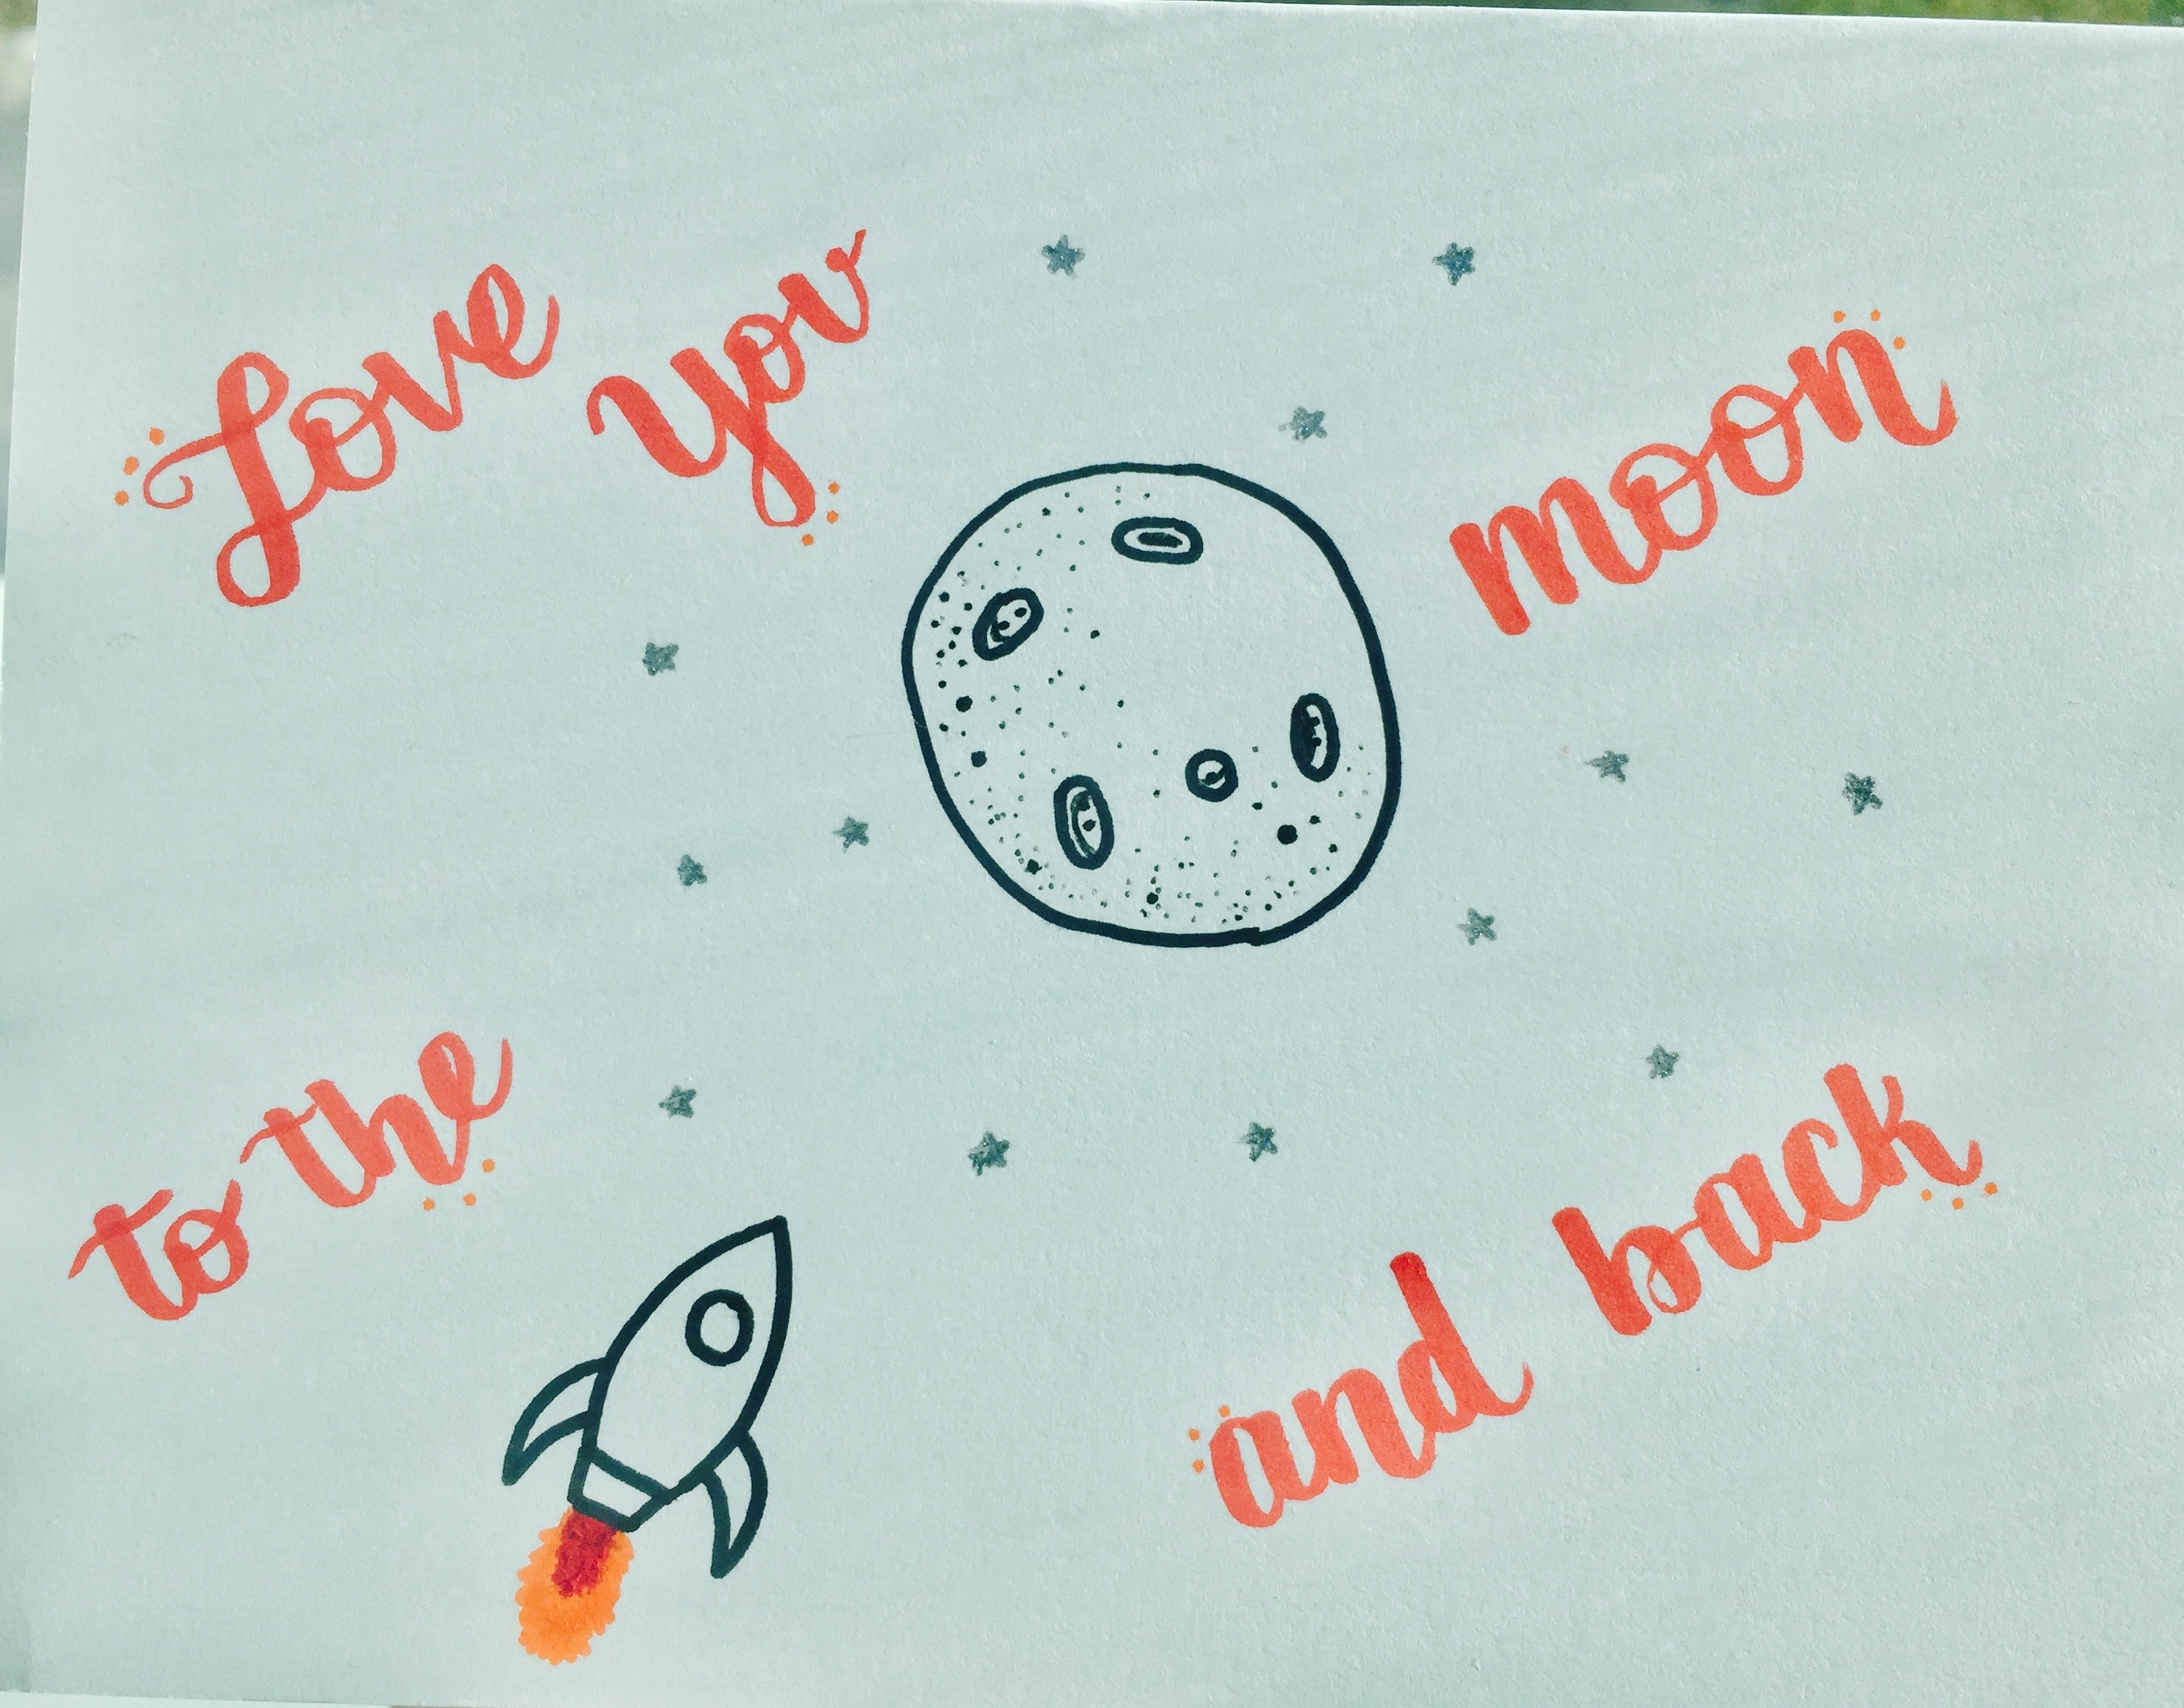 Love you
to the
moon
and back